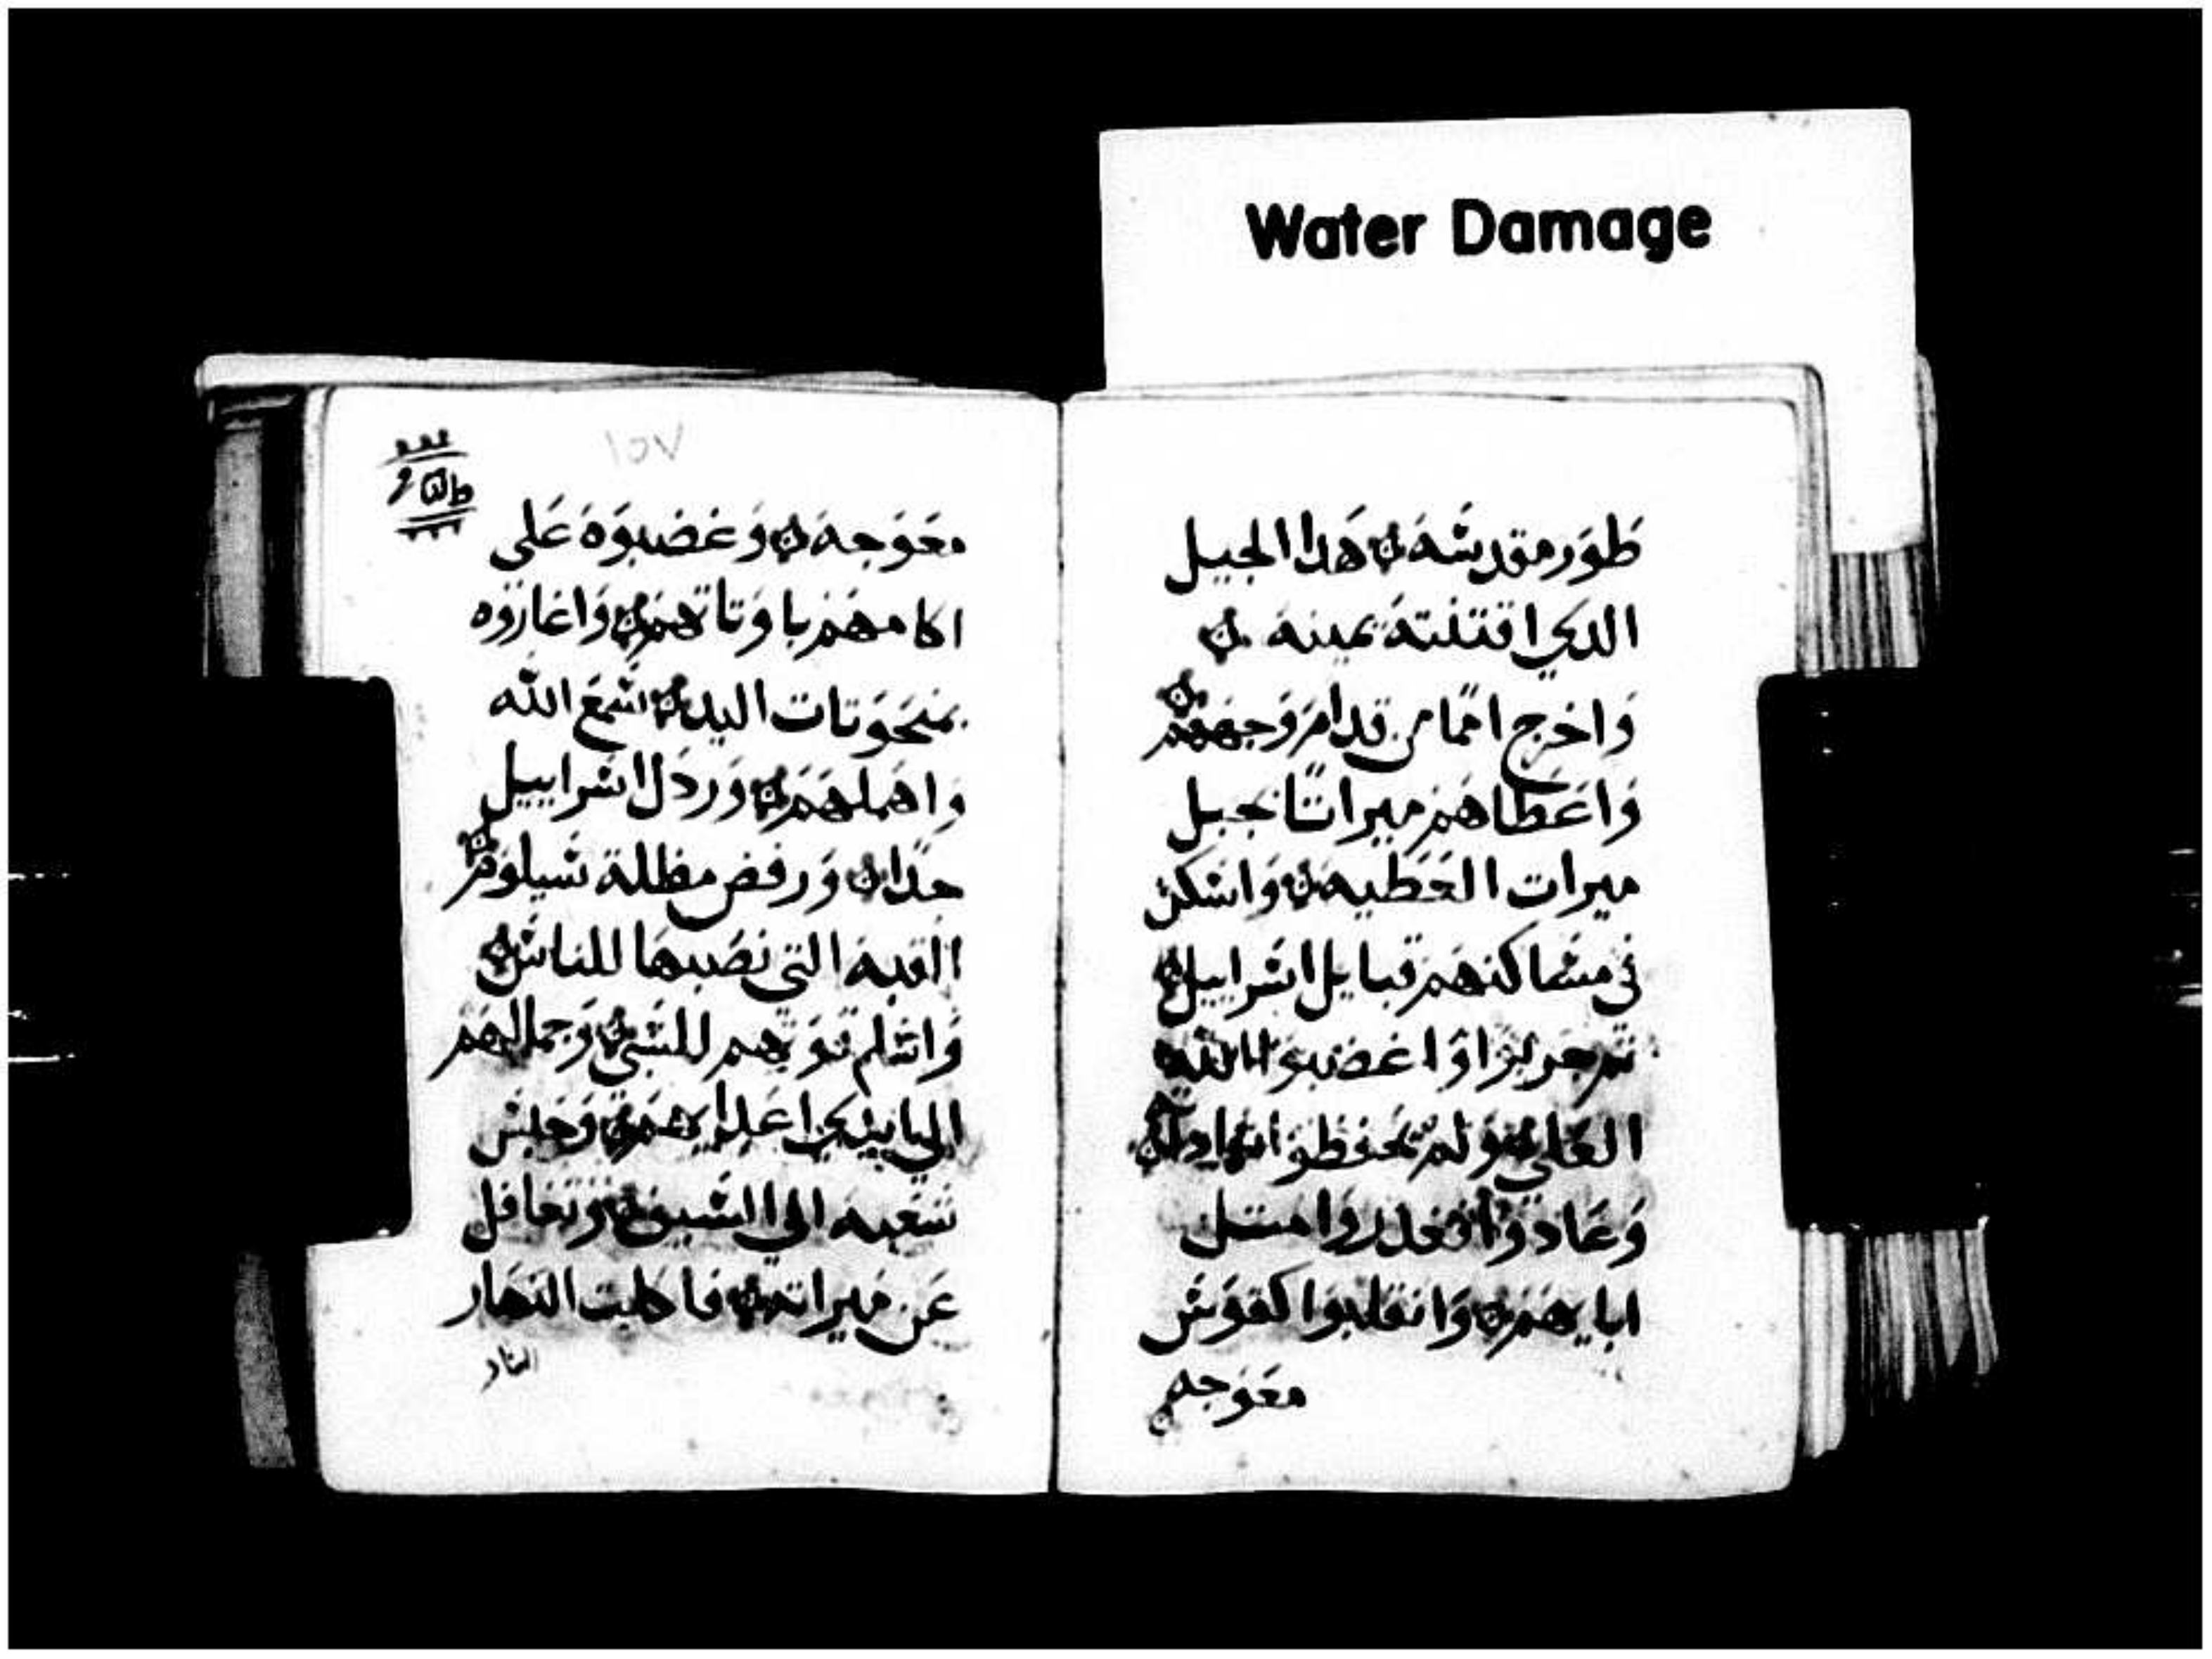 Water Damage
طور مقدسه هدا الجبل
الدي اقتنته يمينه
واخرج امما من قدام وجههم
واعطاهم ميراتا بحبل
ميرات العطيه واسكن
في مساكنهم قبايل اسراييل
تم جربوا واغضبوا الله
العلي ولم يحفظوا
وعادوا وغدروا متل
ابايهم وانقلبوا كقوس
معوجه
١٥٧
معوجه وغضبوه على
اكامهم باوتانهم واغاروه
بمنحوتات اليد سمع الله
واهملهم وردل اسراييل
جدا ورفض مظلة شيلوم
القبه التي نصبها للناس
واسلم قوتهم للسبي وجمالهم
الى ايدي اعدايهم وحبس
شعبه الى السيف وتغافل
عن ميراته فاكلت النهار
النار